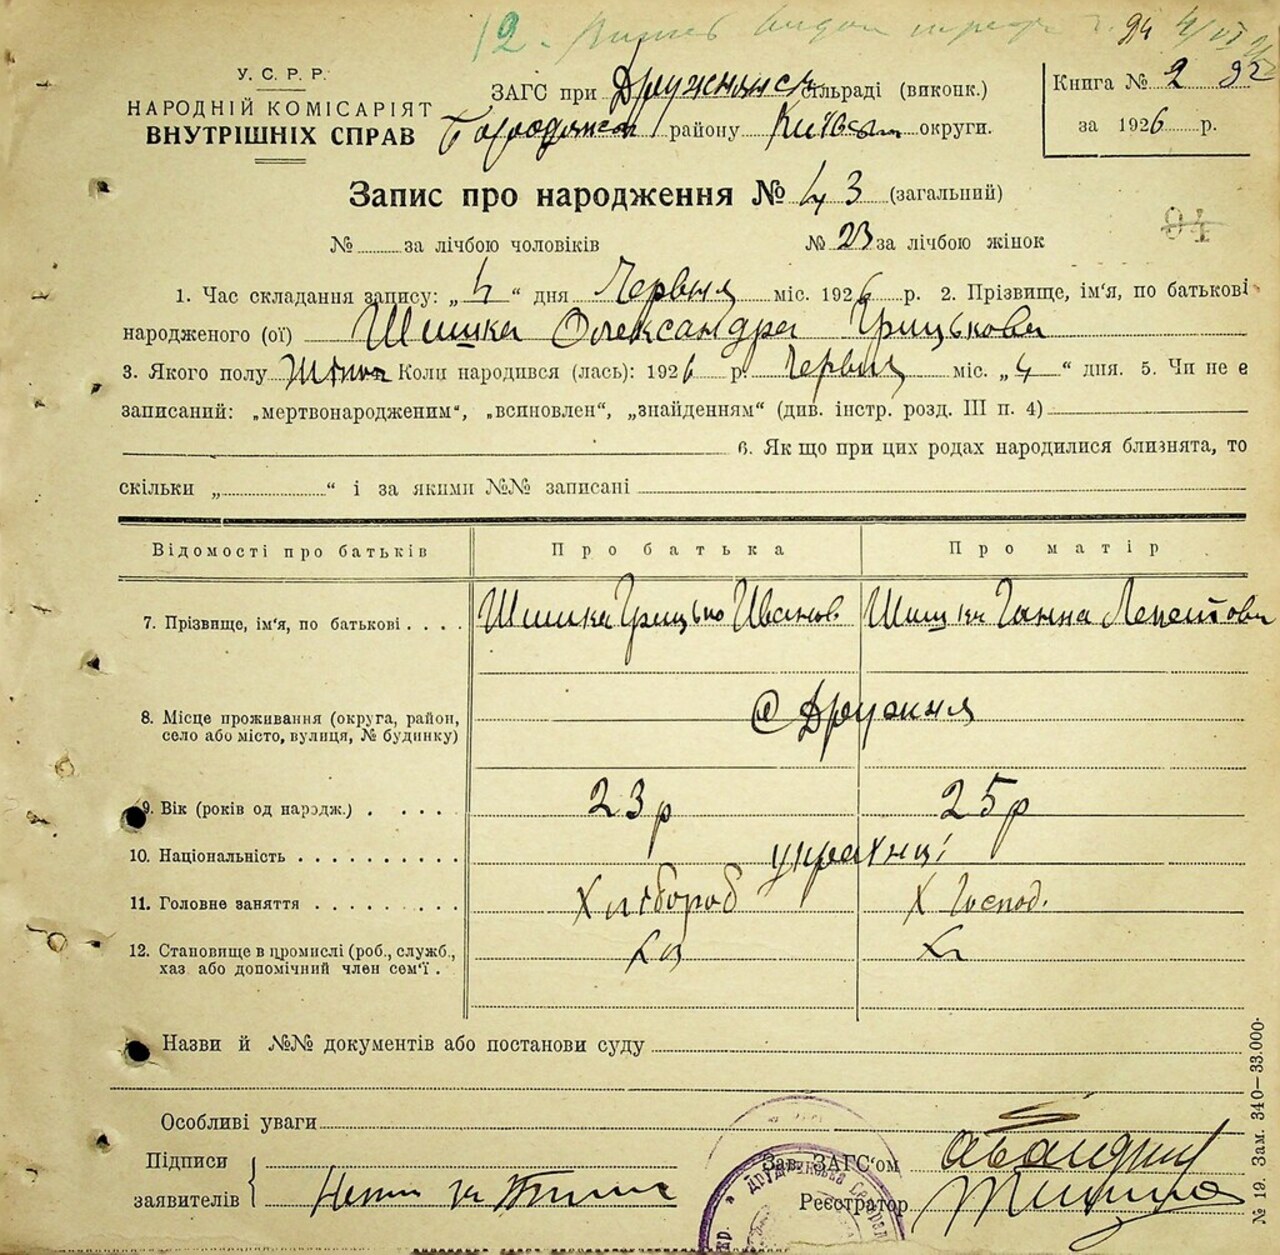 12.
24 4/VI
У. С. Р. Р.
НАРОДНІЙ КОМІСАРІЯТ
ВНУТРІШНІХ СПРАВ
ЗАГС при Дружнянск сільраді (виконк.)
району округи.
Книга № 2 92
за 1926 р.
Запис про народження № 43 (загальний)
94
№ за лічбою чоловіків № 23 за лічбою жінок
1. Час складання запису: „4“ дня Червня міс. 1926 р. 2. Прізвище, ім'я, по батькові
народженого (ої) Шишка Олександра Грицькова
3. Якого полу Жіноч Коли народився (лась): 1926 р. Червня міс. „4“ дня. 5. Чи не є
записаний: „мертвонародженим“, „всиновлен“, „знайденням“ (див. інстр. розд. III п. 4)
6. Як що при цих родах народилися близнята, то
скільки „ “ і за якими №№ записані
Відомості про батьків Про батька Про матір
7. Прізвище, ім'я, по батькові . . . . Шишка Грицько Иванов. Шишка Ганна
8. Місце проживання (округа, район,
село або місто, вулиця, № будинку)
с Дружня
9. Вік (років од народж.) . . . . 23 р 25 р
10. Національність . . . . . . . . . . українці
11. Головне заняття . . . . . . . . . Хлібороб Х Господ.
12. Становище в промислі (роб., служб.,
хаз або допомічний член сем'ї .
Назви й №№ документів або постанови суду
Особливі уваги
Підписи
заявителів
Зав. ЗАГС'ом
Реєстратор
№ 19. Зам. 340—33.000.